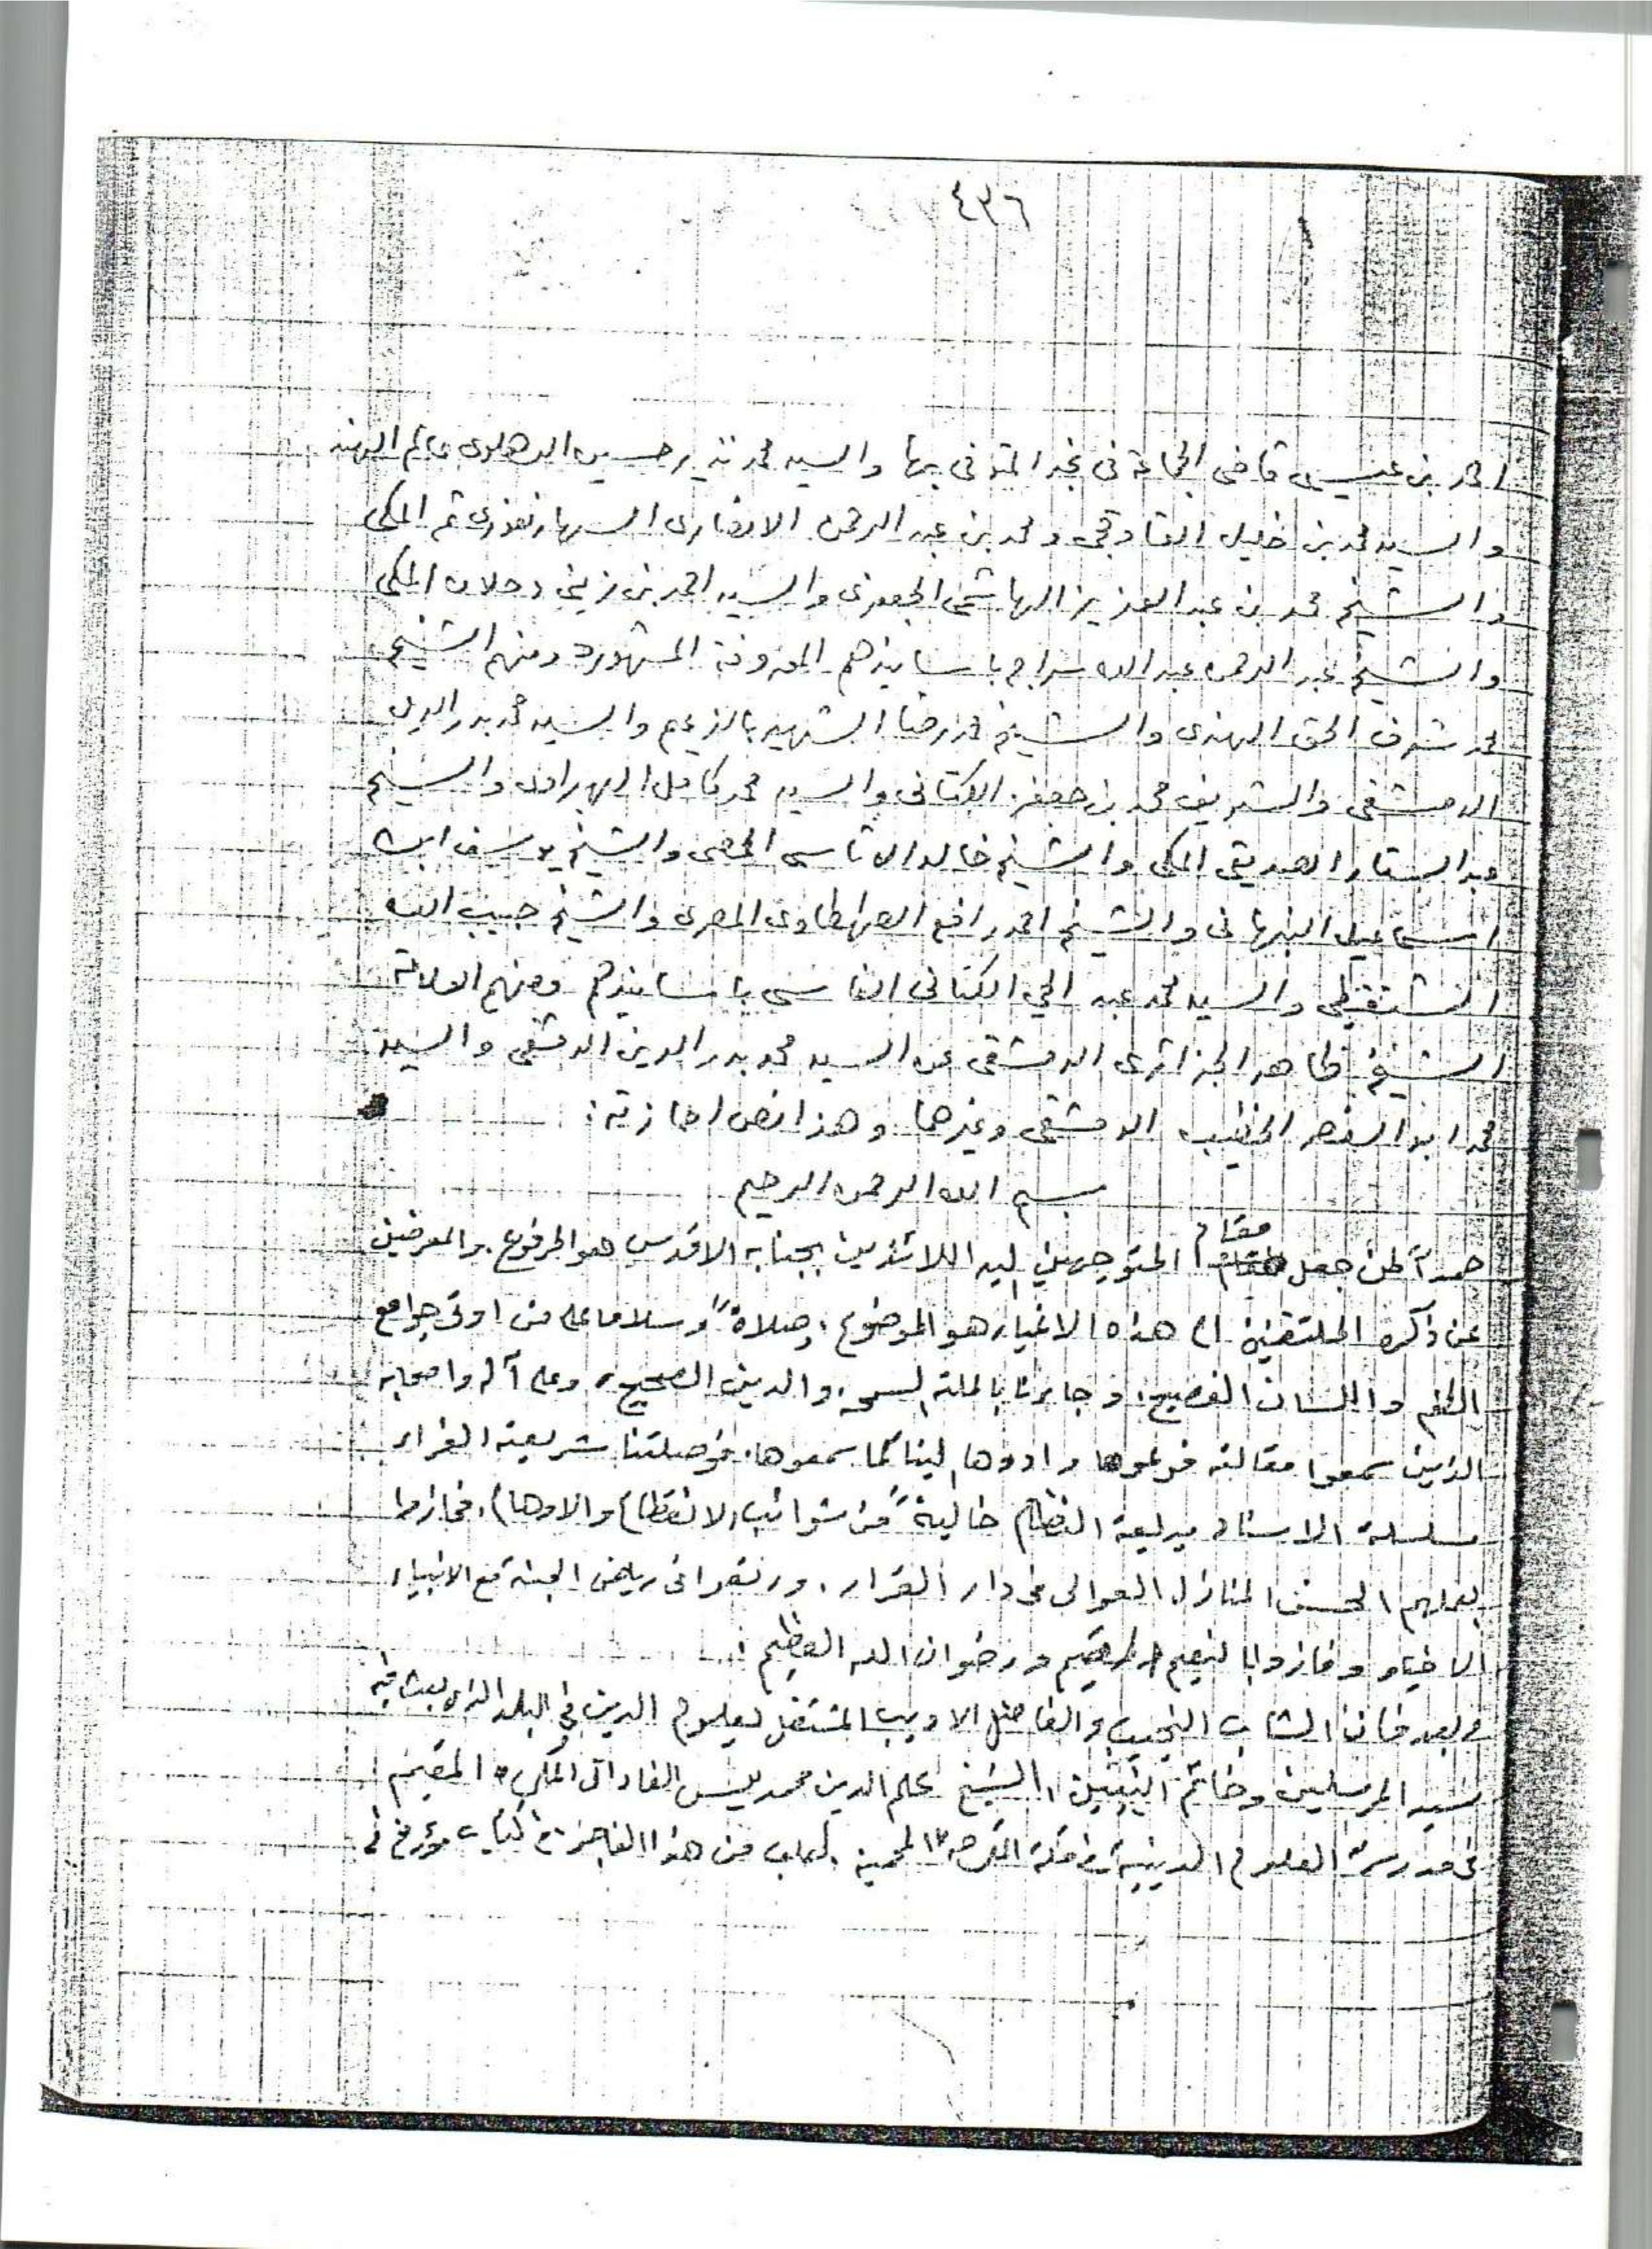 ٤٣٦
احمد بن عيسى قاضى المجمعة فى نجد المتوفى بها والسيد محمد نذير حسين الدهلوى عالم الهند
والسيد محمد بن خليل القاوقجى ومحمد بن عبد الرحمن الانصارى السهارنفورى ثم المكى
والشيخ محمد بن عبد العزيز الهاشمى الجعفرى والسيد احمد بن زينى دحلان المكى
والشيخ عبد الرحمن عبد الله سراج باسانيدهم المعروفة المشهورة ومنهم الشيخ
محمد شرف الحق الهندى والشيخ محمد رضا الشهير بالزعيم والسيد محمد بدر الدين
الدمشقى والشريف محمد بن جعفر الكتانى والسيد محمد كامل الهبراوى والشيخ
عبد الستار الصديقى المكى والشيخ خالد الاتاسى الحمصى والشيخ يوسف ابن
اسماعيل النبهانى والشيخ احمد رافع الطهطاوى المصرى والشيخ حبيب الله
الشنقيطى والسيد محمد عبد الحي الكتانى الفاسى باسانيدهم ومنهم العلامة
الشيخ طاهر الجزائرى الدمشقى عن السيد محمد بدر الدين الدمشقى والسيد
محمد ابو النصر الخطيب الدمشقى وغيرهما وهذا نص اجازته :
بسم الله الرحمن الرحيم
حمداً لمن جعل مقام المتوجهين اليه اللائذين بجنابه الاقدس هو المرفوع . والمعرضين
عن ذكره الملتفتين الى هذه الاغيار هو الموضوع . وصلاةً وسلاما على من اوتى جوامع
الكلم واللسان الفصيح . وجاءنا بالملة السمحه . والدين الصحيح . وعلى آله واصحابه
الذين سمعوا مقالته فوعوها وادوها الينا كما سمعوها . فوصلتنا شريعته الغراء
سلسلة الاسناد بديعة النظام خاليةً من شوائب الانقطاع والاوهام . فحازوا
بعملهم الحسن المنازل العوالى فى دار القرار . ورتعوا فى رياض الجنة مع الانبياء
الاخيار وفازوا بالنعيم المقيم ورضوان الله العظيم .
وبعد فان الشاب النجيب والفاضل الاديب المشتغل بعلوم الدين في البلد الذى بعث فيه
سيد المرسلين وخاتم النبيين الشيخ علم الدين محمد يٰس الفادانى المكى المقيم
فى مدرسة العلوم الدينية فى مكة المكرمة المحمية . طلب من هذا العاجز فى كتاب مؤرخ فى